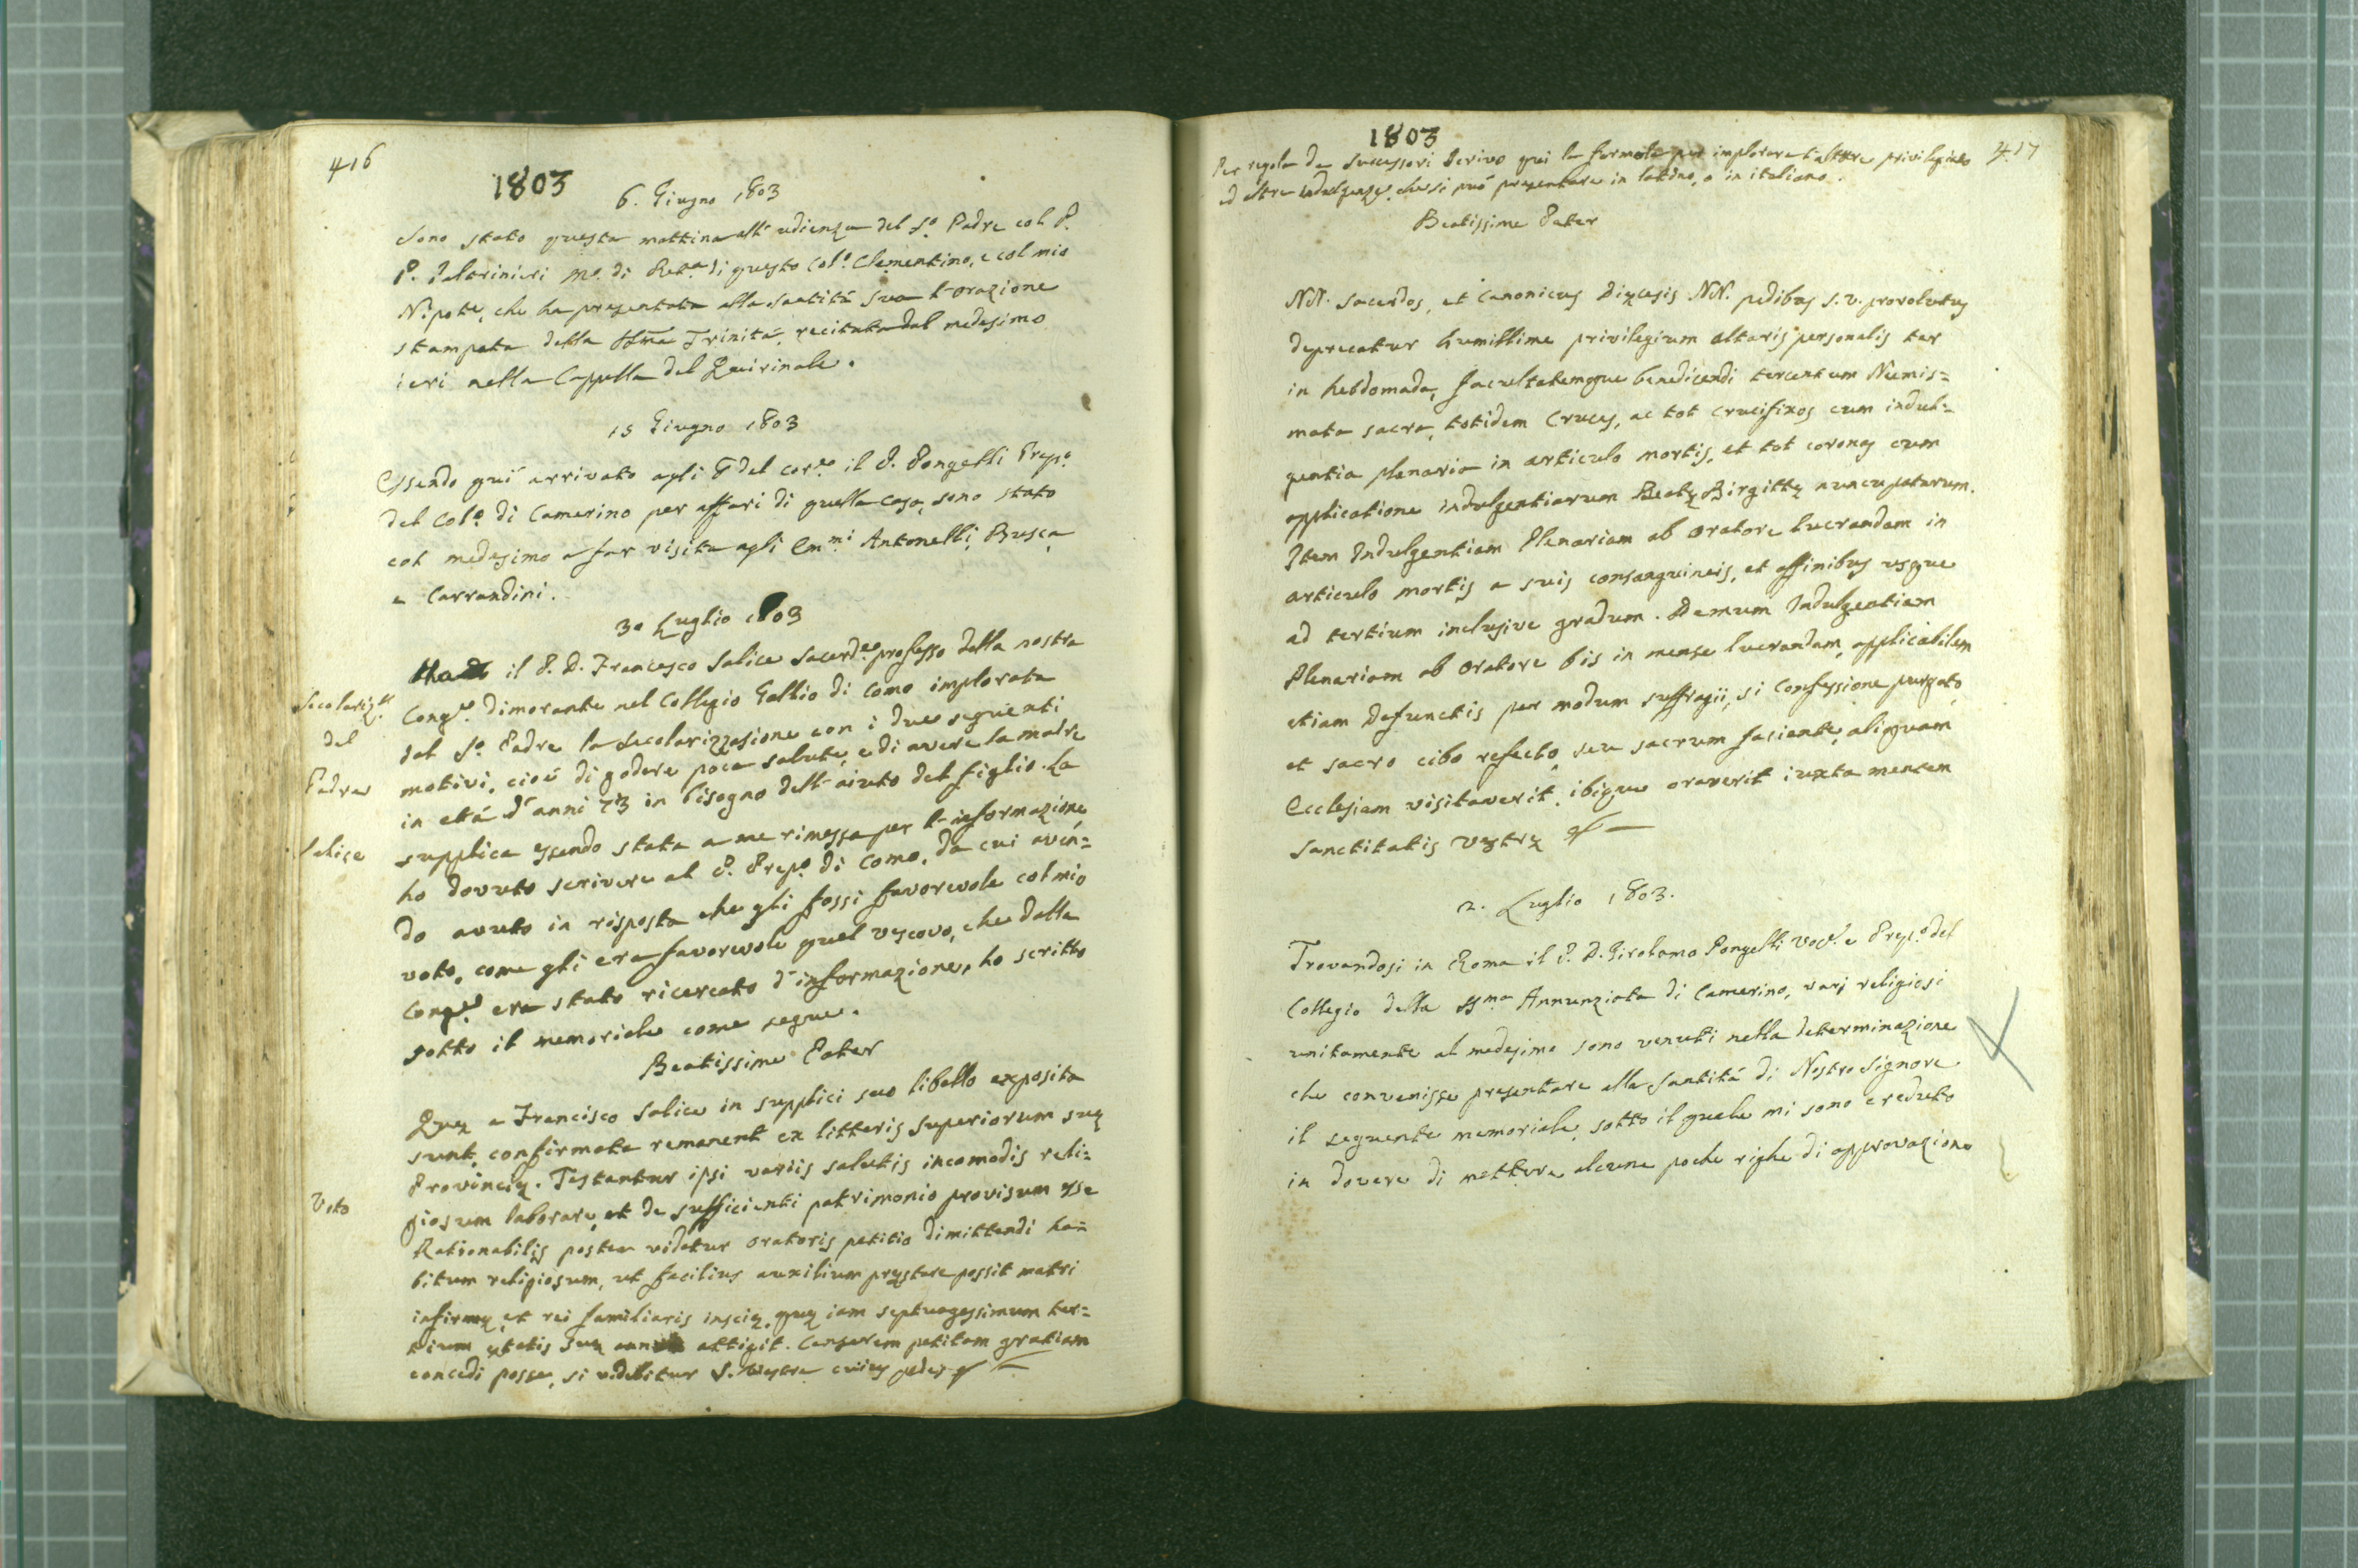 416
1803
6. Giugno 1803
Sono stato questa mattina all'udienza del S.º Padre col P.
P. Paltrinieri M.º di Ret.ª di questo Col.º Clementino, e col mio
Nipote, che ha presentata alla Santità sua l'orazione
stampata della SSma Trinità, recitata dal medesimo
ieri nella Cappella del Quirinale.
15 Giugno 1803
Essendo quì arrivato agli 8 del cor.te il P. Pongelli Prep.º
del Col.º di Camerino per affari di quella casa, sono stato
col medesimo a far visita agli Em.mi Antonelli, Busca
e Carrandini.
30 Luglio 1803
Ha il P. D. Francesco Salice Sacerd.te professo della nostra
Secolariz.e
del
Padre
Salice
Cong.e dimorante nel Collegio Gallio di Como implorata
dal S.º Padre la secolarizzazione con i due seguenti
motivi, cioè di godere poca salute, e di avere la madre
in età d'anni 73 in bisogno dell'aiuto del figlio. La
supplica essendo stata a me rimessa per l'informazione
ho dovuto scrivere al P. Prep.º di Como, da cui aven=
do avuto in risposta che gli fossi favorevole col mio
voto, come gli era favorevole quel vescovo, che dalla
Cong.e era stato ricercato d'informazione, ho scritto
sotto il memoriale come segue.
Beatissime Pater
Quę a Francisco Salice in supplici suo libello exposita
sunt, confirmata remanent ex litteris superiorum suę
Provincię. Testantur ipsi variis salutis incomodis reli=
Voto
giosum laborare, et de sufficienti patrimonio provisum esse
Rationabilis postea videtur oratoris petitio dimittendi ha=
bitum religiosum, ut facilius auxilium pręstare possit matri
infirmę, et rei familiaris inscię, quę iam septuagessimum ter=
tium ętatis suę attigit. Censerem petitam gratiam
concedi posse, si videbitur S. Vestrę cuius pedes
1803
417
Per regola de Successori scrivo qui la formola per implorare l'altare privilegiato
ed altre indulgenze, che si può presentare in latino, o in italiano.
Beatissime Pater
NN. Sacerdos, et Canonicus Dięcesis NN. pedibus S. V. provolutus
deprecatur humillime privilegium altaris personalis ter
in hebdomada, facultatemque benedicendi tercentum Numis=
mata sacra, totidem Cruces, ac tot crucifixos cum indul=
gentia plenaria in articulo mortis, et tot coronas cum
applicatione indulgentiarum Beatę Birgittę nuncupatarum.
Item Indulgentiam Plenariam ab Oratore lucrandam in
articulo mortis a suis consanguineis, et affinibus usque
ad tertium inclusive gradum. Demum Indulgentiam
Plenariam ab Oratore bis in mense lucrandam, applicabilem
etiam Defunctis per modum suffragii, si Confessione purgato,
et sacro cibo refecto, seu sacrum faciente, aliquam
Ecclesiam visitaverit, ibique oraverit iuxta mentem
Sanctitatis Vestrę
2. Luglio 1803.
Trovandosi in Roma il P. D. Girolamo Pongelli Voc.e e Prep.º del
Collegio della SS.ma Annunziata di Camerino, varj religiosi
unitamente al medesimo sono venuti nella determinazione
che convenisse presentare alla Santità di Nostro Signore
il seguente memoriale, sotto il quale mi sono creduto
in dovere di mettere alcune poche righe di approvazione